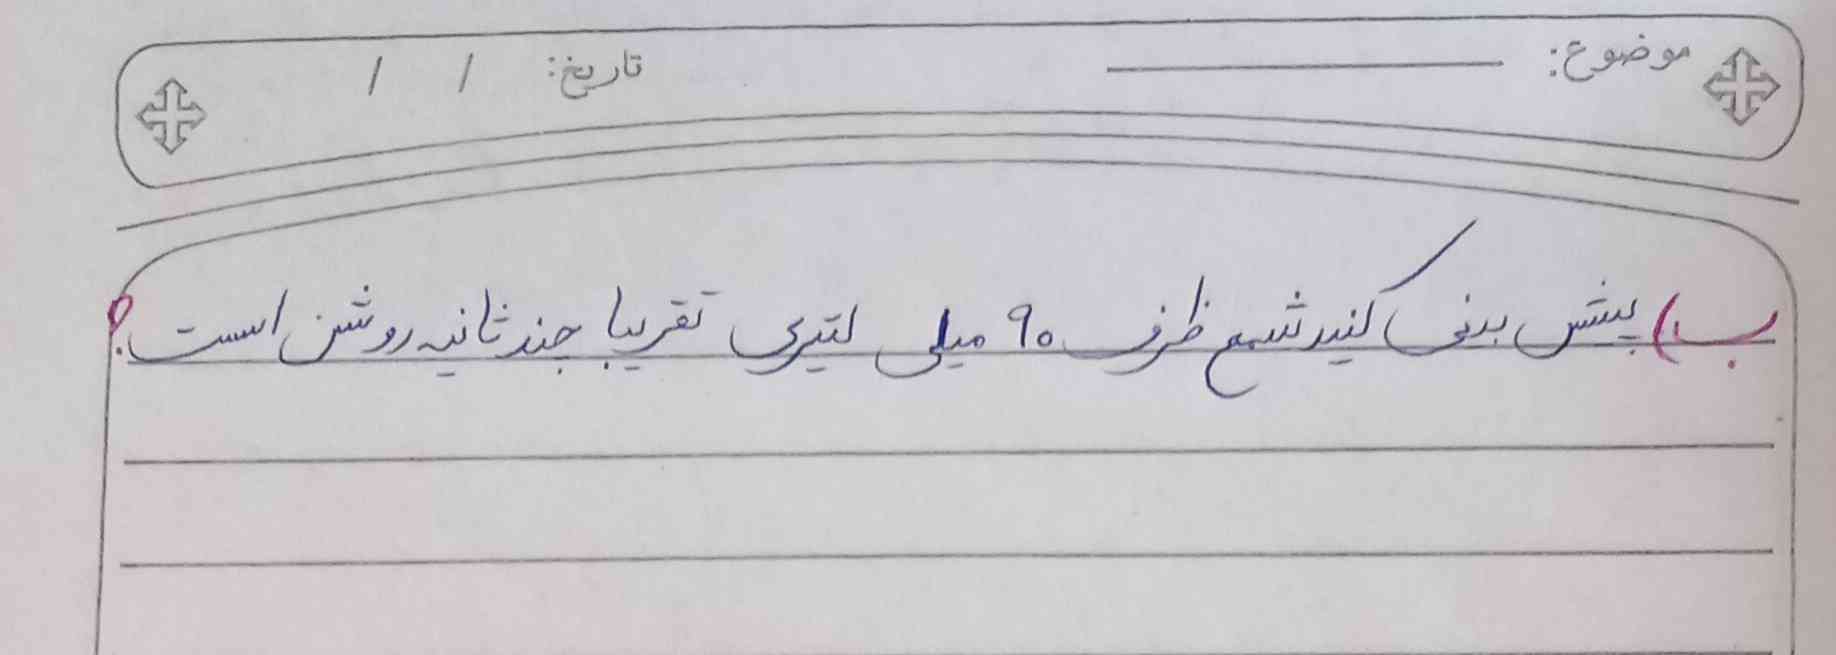 موضوع: تاریخ: / /
ب) پیش بینی کنید شمع ظرف ۹۰ میلی لیتری تقریبا چند ثانیه روشن است؟